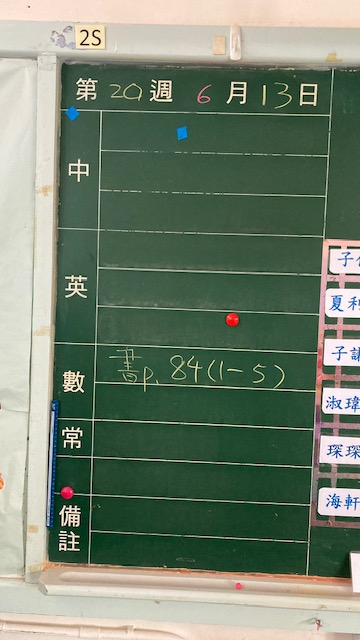 2S
第 20 週 6 月 13 日
中
英
數 書p. 84(1-5)
常
備註
子
夏利
子謙
淑瑋
琛琛
海軒